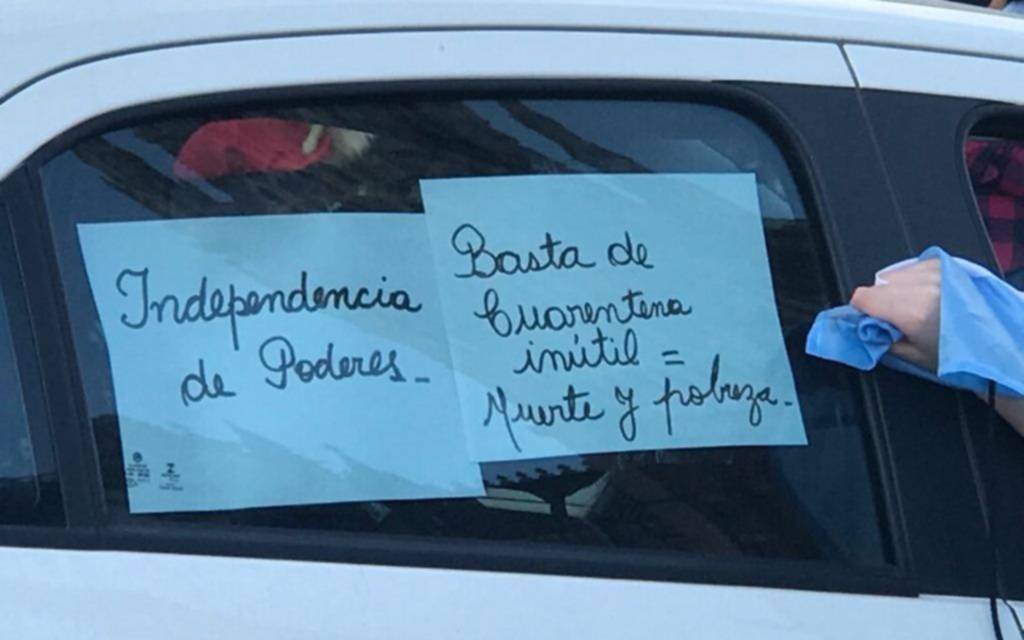 Independencia
de Poderes_
Basta de
Cuarentena
inútil =
Muerte y pobreza.